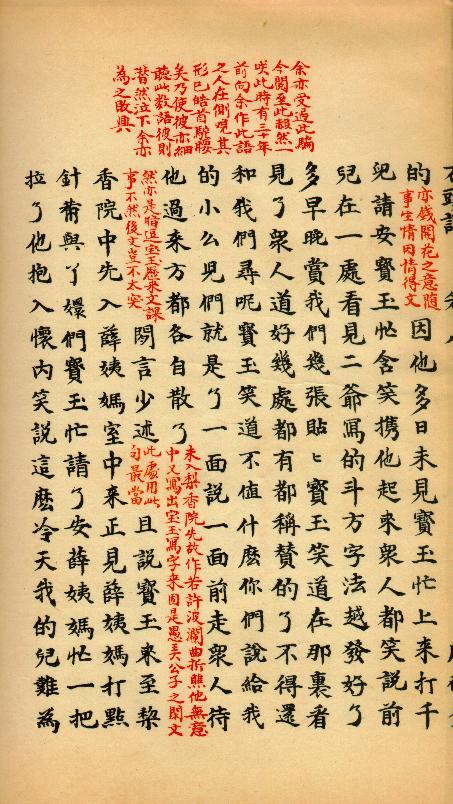 余亦受過此騙
今閱至此赧然一
咲此時有三十年
前向余作此語
之人在側覌其
形已皓首駝腰
矣乃使彼亦細
聽此数語彼則
潸然泣下余亦
為之敗興
的亦錢開花之意隨事生情因情得文因他多日未見寶玉忙上来打千
兒請安寶玉忙含笑携他起来衆人都笑說前
兒在一處看見二爺冩的斗方字法越發好了
多早晚賞我們幾張貼ヒ寶玉笑道在那裏看
見了衆人道好幾處都有都稱賛的了不得還
和我們尋呢寶玉笑道不值什麽你們說給我
的小么兒們就是了一面說一面前走衆人待
他過来方都各自散了未入梨香院先故作若許波瀾曲折瞧他無意中又寫出宝玉寫字来固是愚弄公子之閑文
然亦是暗逗宝玉歷来文課事不然後文豈不太突閒言少述此處用此句最當且說寶玉来至棃
香院中先入薛姨媽室中来正見薛姨媽打點
針黹與丫嬛們寶玉忙請了安薛姨媽忙一把
拉了他抱入懷内笑說這麽冷天我的兒難為